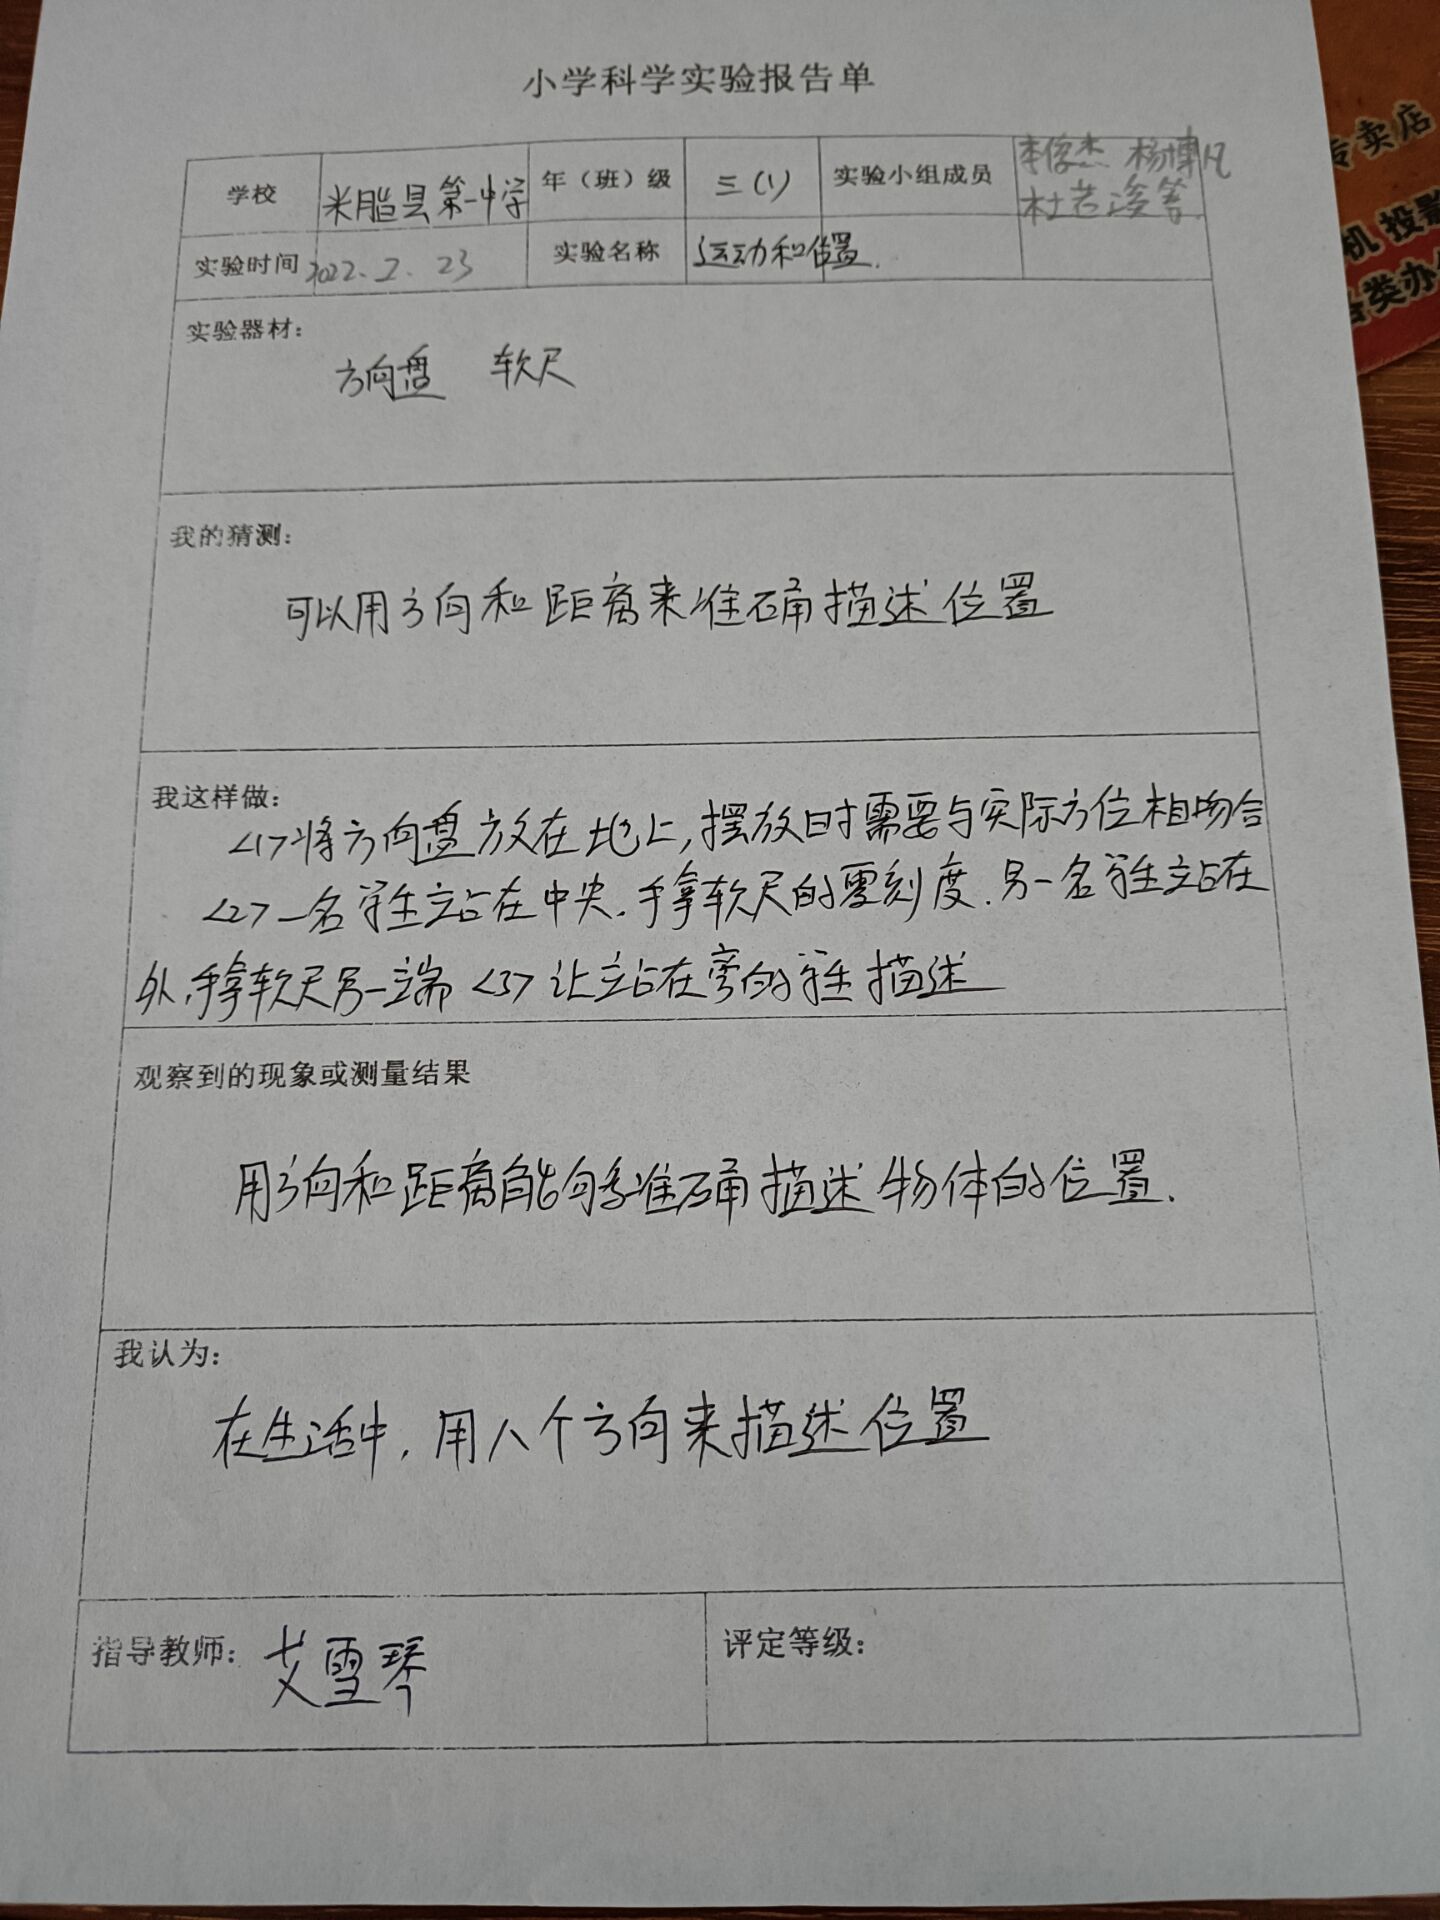 小学科学实验报告单
学校 米脂县第一中学 年（班）级 三（1） 实验小组成员 李俊杰 杨博凡
杜若溪等.
实验时间 2022.2.23 实验名称 运动和位置.
实验器材：
方向盘 软尺
我的猜测：
可以用方向和距离来准确描述位置
我这样做：
<1>将方向盘放在地上,摆放时需要与实际方位相吻合
<2>一名学生站在中央.手拿软尺的零刻度.另一名学生站在
外,手拿软尺另一端<3>让站在旁的学生描述
观察到的现象或测量结果
用方向和距离能够准确描述物体的位置.
我认为：
在生活中,用八个方向来描述位置
指导教师：艾雪琴 评定等级：
专卖店
机 投影
各类办